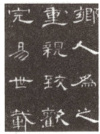 鄉人為之
重親致歡
完易世載